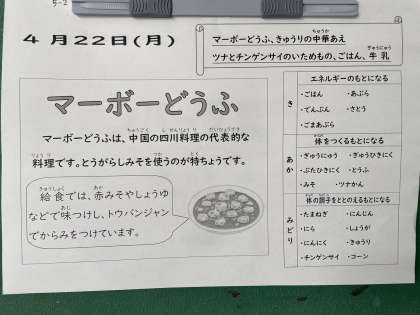 5-2
4月22日(月)
マーボーどうふ、きゅうりの中華あえ
ちゅうか
ツナとチンゲンサイのいためもの、ごはん、牛乳
ぎゅうにゅう
マーボーどうふ
マーボーどうふは、中国の四川料理の代表的な
ちゅうごく しせんりょうり だいひょうてき
料理です。とうがらしみそを使うのが特ちょうです。
りょうり つか とく
給食では、赤みそやしょうゆ
きゅうしょく あか
などで味つけし、トウバンジャン
あじ
でからみをつけています。
き
エネルギーのもとになる
・ごはん ・あぶら
・でんぷん ・さとう
・ごまあぶら
あか
体をつくるもとになる
からだ
・ぎゅうにゅう ・ぎゅうひきにく
・ぶたひきにく ・とうふ
・みそ ・ツナかん
みどり
体の調子をととのえるもとになる
・たまねぎ ・にんじん
・にら ・しょうが
・にんにく ・きゅうり
・チンゲンサイ ・コーン